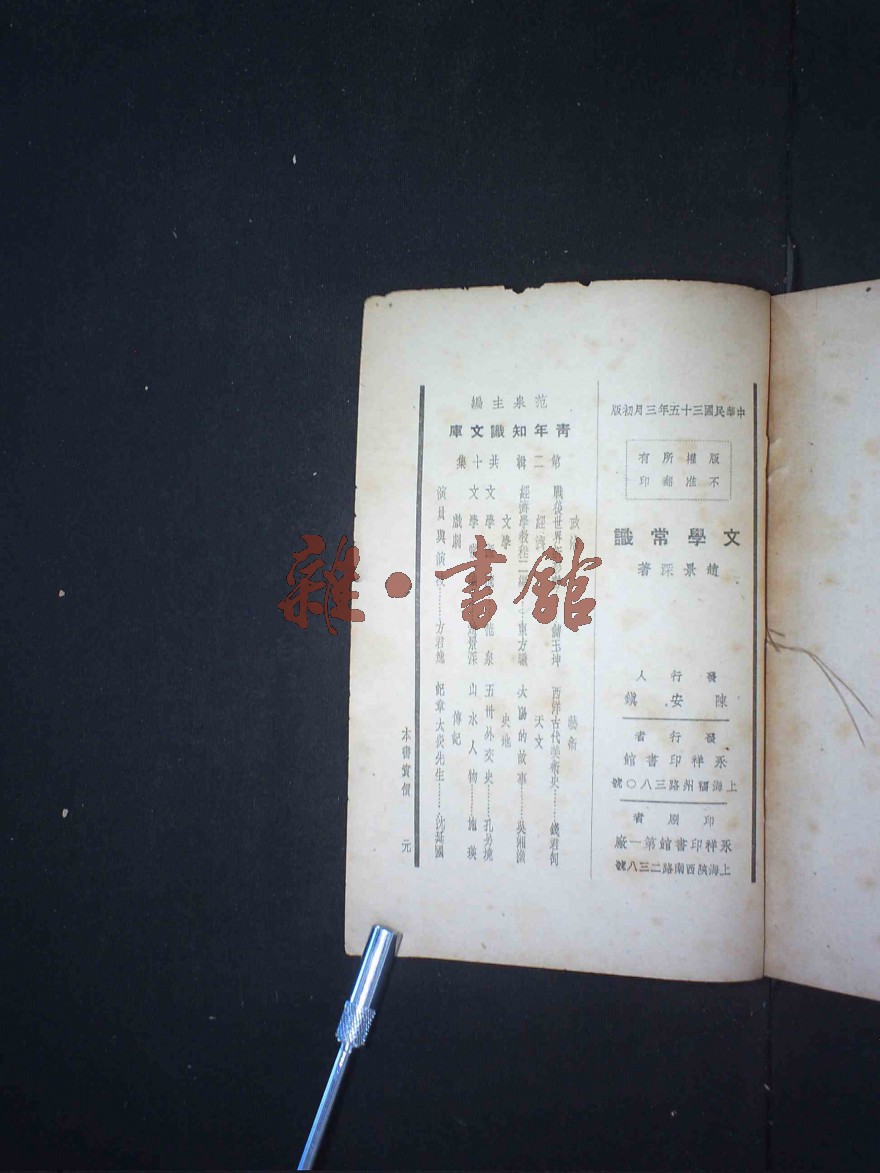 中華民國三十五年三月初版
版權所有
不准翻印
文學常識
趙景深著
發行人
陳安鎮
發行者
永祥印書館
上海福州路三八〇號
印刷者
永祥印書館第一廠
上海陝西南路二三八號
范泉主編
青年知識文庫
第二輯 共十集
政治
戰後世界
玉坤
經濟
經濟學教程二
東方曦
文學
文學
范泉
文學
景深
戲劇
演員與演技……方君逸
藝術
西洋古代美術史……錢君匋
天文
太陽的故事……吳湘漁
史地
五卅外交史……孔另境
山水人物……施瑛
傳記
記章太炎先生……沈延國
本書實價 元
雜·書館